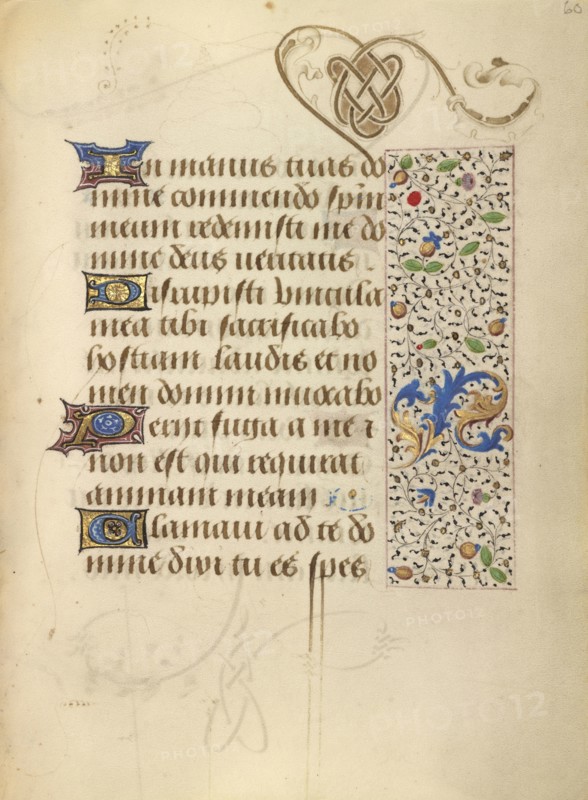 60
In manus tuas do
mine commendo sp̄m
meum redemisti me do
mine deus ueritatis .
Dirupisti vincula
mea tibi sacrificabo
hostiam laudis et no
men domini inuocabo
Perijt fuga a me ⁊
non est qui requirat
animam meam
Clamaui ad te do
mine dixi tu es spes
PHOTO12
PHOTO12
PHOTO12